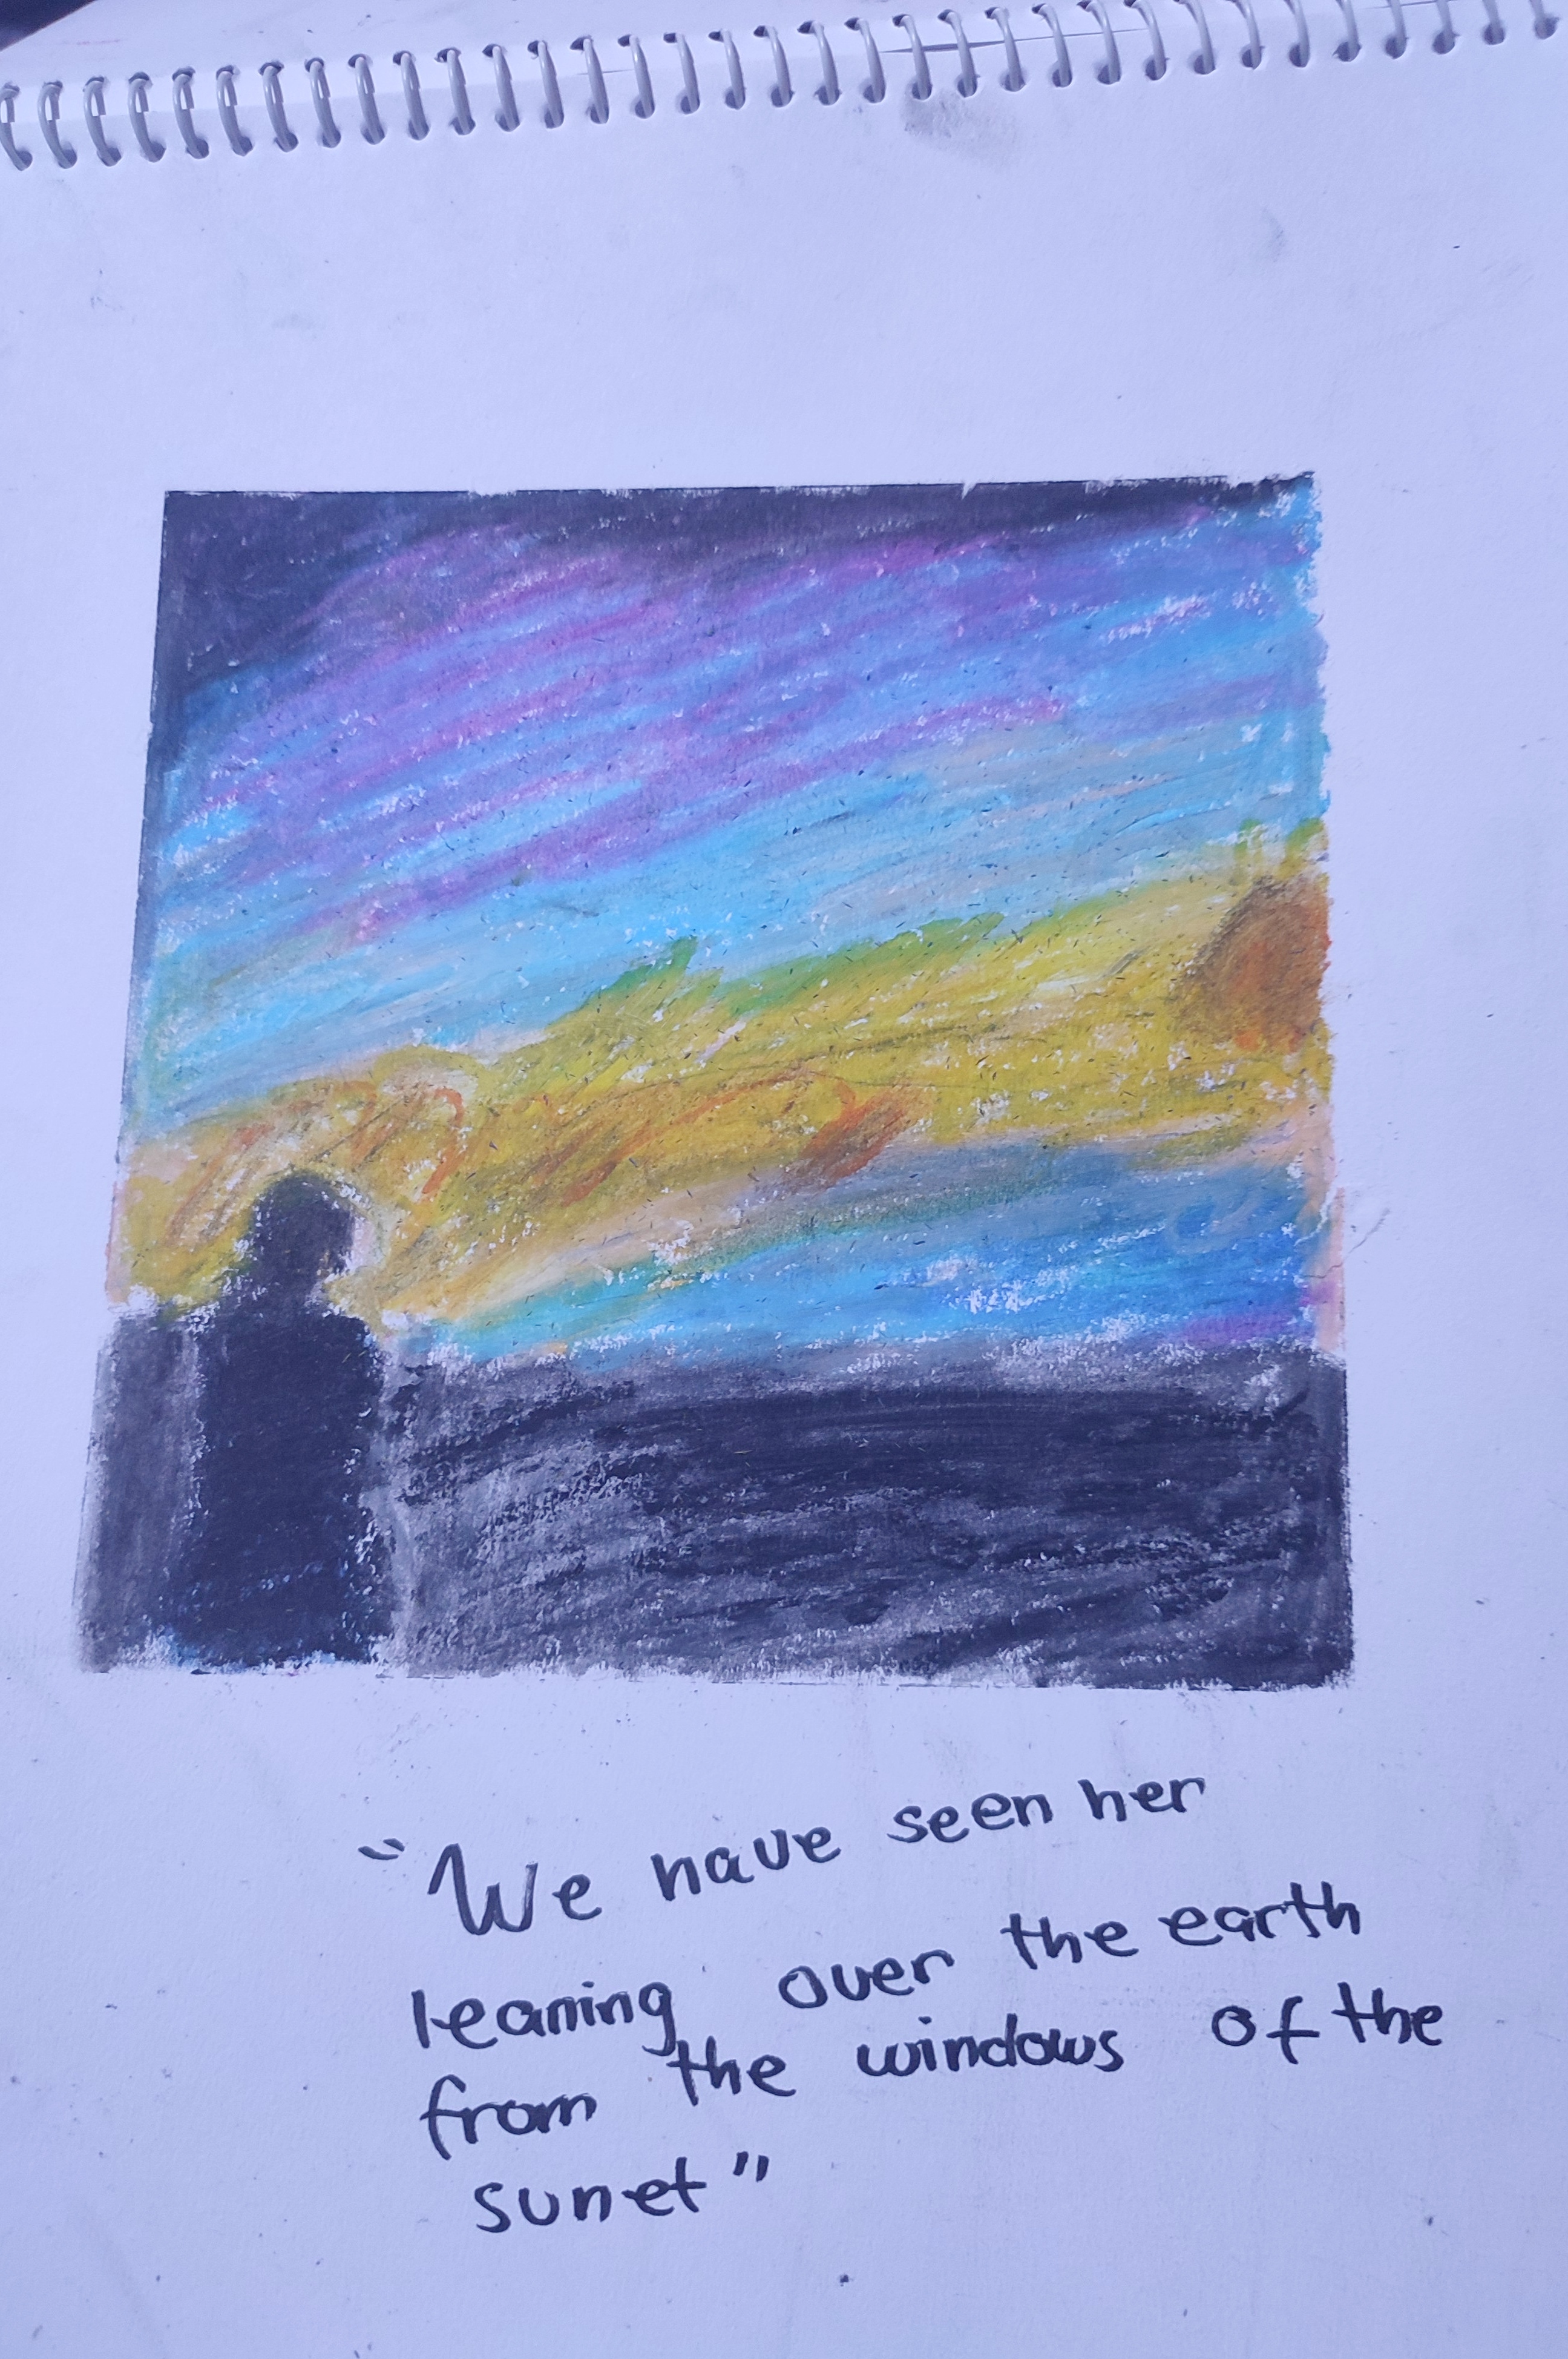 "We have seen her
leaning over the earth
from the windows of the
sunet"